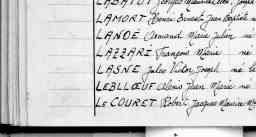 LABATUT Georges
LAMORT Ernest Jean Baptiste
LANOË Armand Marie Julien né
LAZZARI François Marie né
LASNE Jules Victor Joseph né le
LEBLLŒUF Alexis Jean Marie né
LE COURET Robert Jacques Maurice M